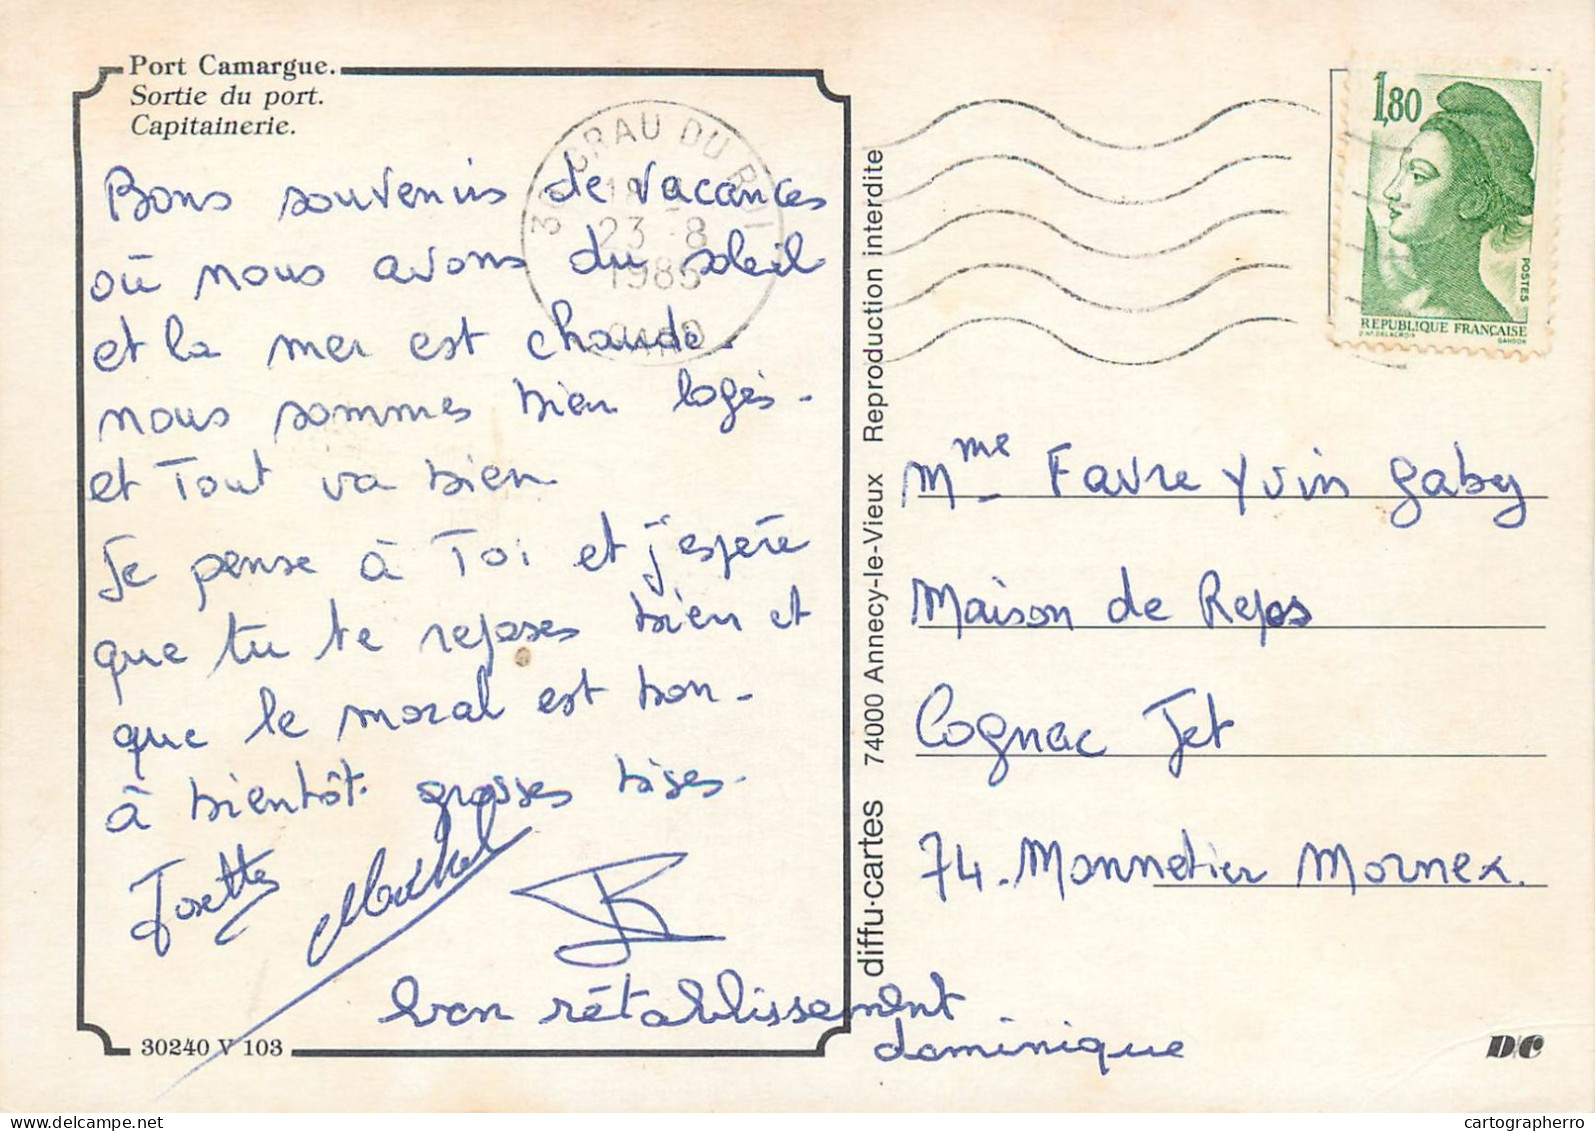 Port Camargue.
Sortie du port.
Capitainerie.
Bons souvenirs de vacances
où nous avons du soleil
et la mer est chaude.
nous sommes bien logés -
et Tout va bien
Je pense à Toi et j'espère
que tu te reposes bien et
que le moral est bon -
à bientôt. grosses bises.
Josette Michel
bon rétablissement
dominique
30240 V 103
30 GRAU DU ROI
23 -8
1985
GARD
diffu·cartes 74000 Annecy-le-Vieux Reproduction interdite
1,80
POSTES
REPUBLIQUE FRANÇAISE
D'AP. DELACROIX GANDON
Mme Favre Yvin Gaby
Maison de Repos
Cognac Jet
74. Monnetier Mornex.
D/C
delcampe.net
cartographerro